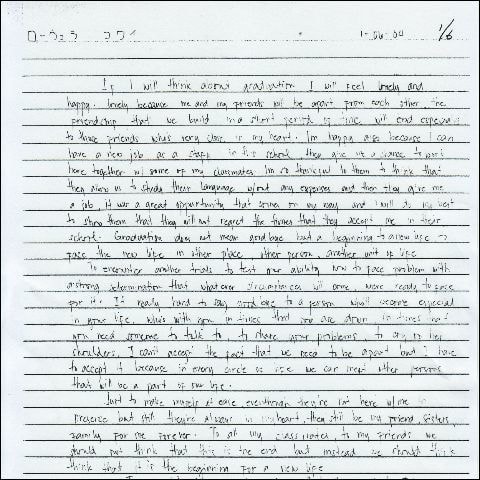 1-06-04 1/6
If I will think about graduation I will feel lonely and
happy. lonely because me and my friends will be apart from each other, the
friendship that we build in a short period of time will end especially
to those friends who's very close in my heart. I'm happy also because I can
have a new job as a staff in this school, they give us a chance to work
here together w/ some of my classmates. I'm so thankful to them to think that
they allow us to study their language w/out any expenses and then they give me
a job, it was a great opportunity that comes on my way and I will do my best
to show them that they will not regret the times that they accept me in their
school. Graduation does not mean goodbye but a beginning to a new life, to
face the new life in other place, other person, another unit of life
To encounter another trials to test our ability how to face problem with
a strong determination that whatever circumstances will come, we're ready to face
for it. It really hard to say goodbye to a person who'll become especial
in your life, who's with you in times that you are down in times that
you need someone to talk to, to share your problems to cry on her
shoulders. I can't accept the fact that we need to be apart but I have
to accept it because in every circle of life we can meet other persons
that will be a part of our life.
Just to make myself at ease, eventhough they're not here w/ me in
presence but still they're always in my heart, they still be my friend, sisters,
family for me forever. To all my classmates, to my friends we
should not think that this is the end but instead we should think
think that it is the beginning for a new life